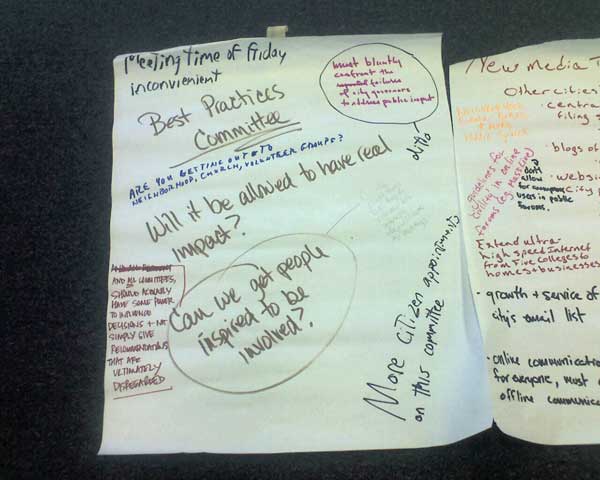 Meeting time of Friday
inconvienient
must bluntly
confront the
failures
of city governors
to address public input
ditto
Best Practices
Committee
ARE YOU GETTING OUT TO
NEIGHBORHOOD, CHURCH, VOLUNTEER GROUPS?
Will it be allowed to have real
impact?
Can we get people
inspired to be
involved?
AND ALL COMMITTEES,
SHOULD ACTUALLY
HAVE SOME POWER
TO INFLUENCE
DECISIONS + NOT
SIMPLY GIVE
RECOMMENDATIONS
THAT ARE
ULTIMATELY
DISREGARDED
More Citizen appointments
on this committee
New Media T
Other cities
centra
filing s
blogs of
websi
city p
guidelines for
civility in online
forums (eg MassLive)
don't
allow
for anonymous
users in public
forums.
Extend ultra-
high speed Internet
from Five Colleges to
homes + businesses
· growth + service of
city's email list
· online communicatio
for everyone, must a
offline communica